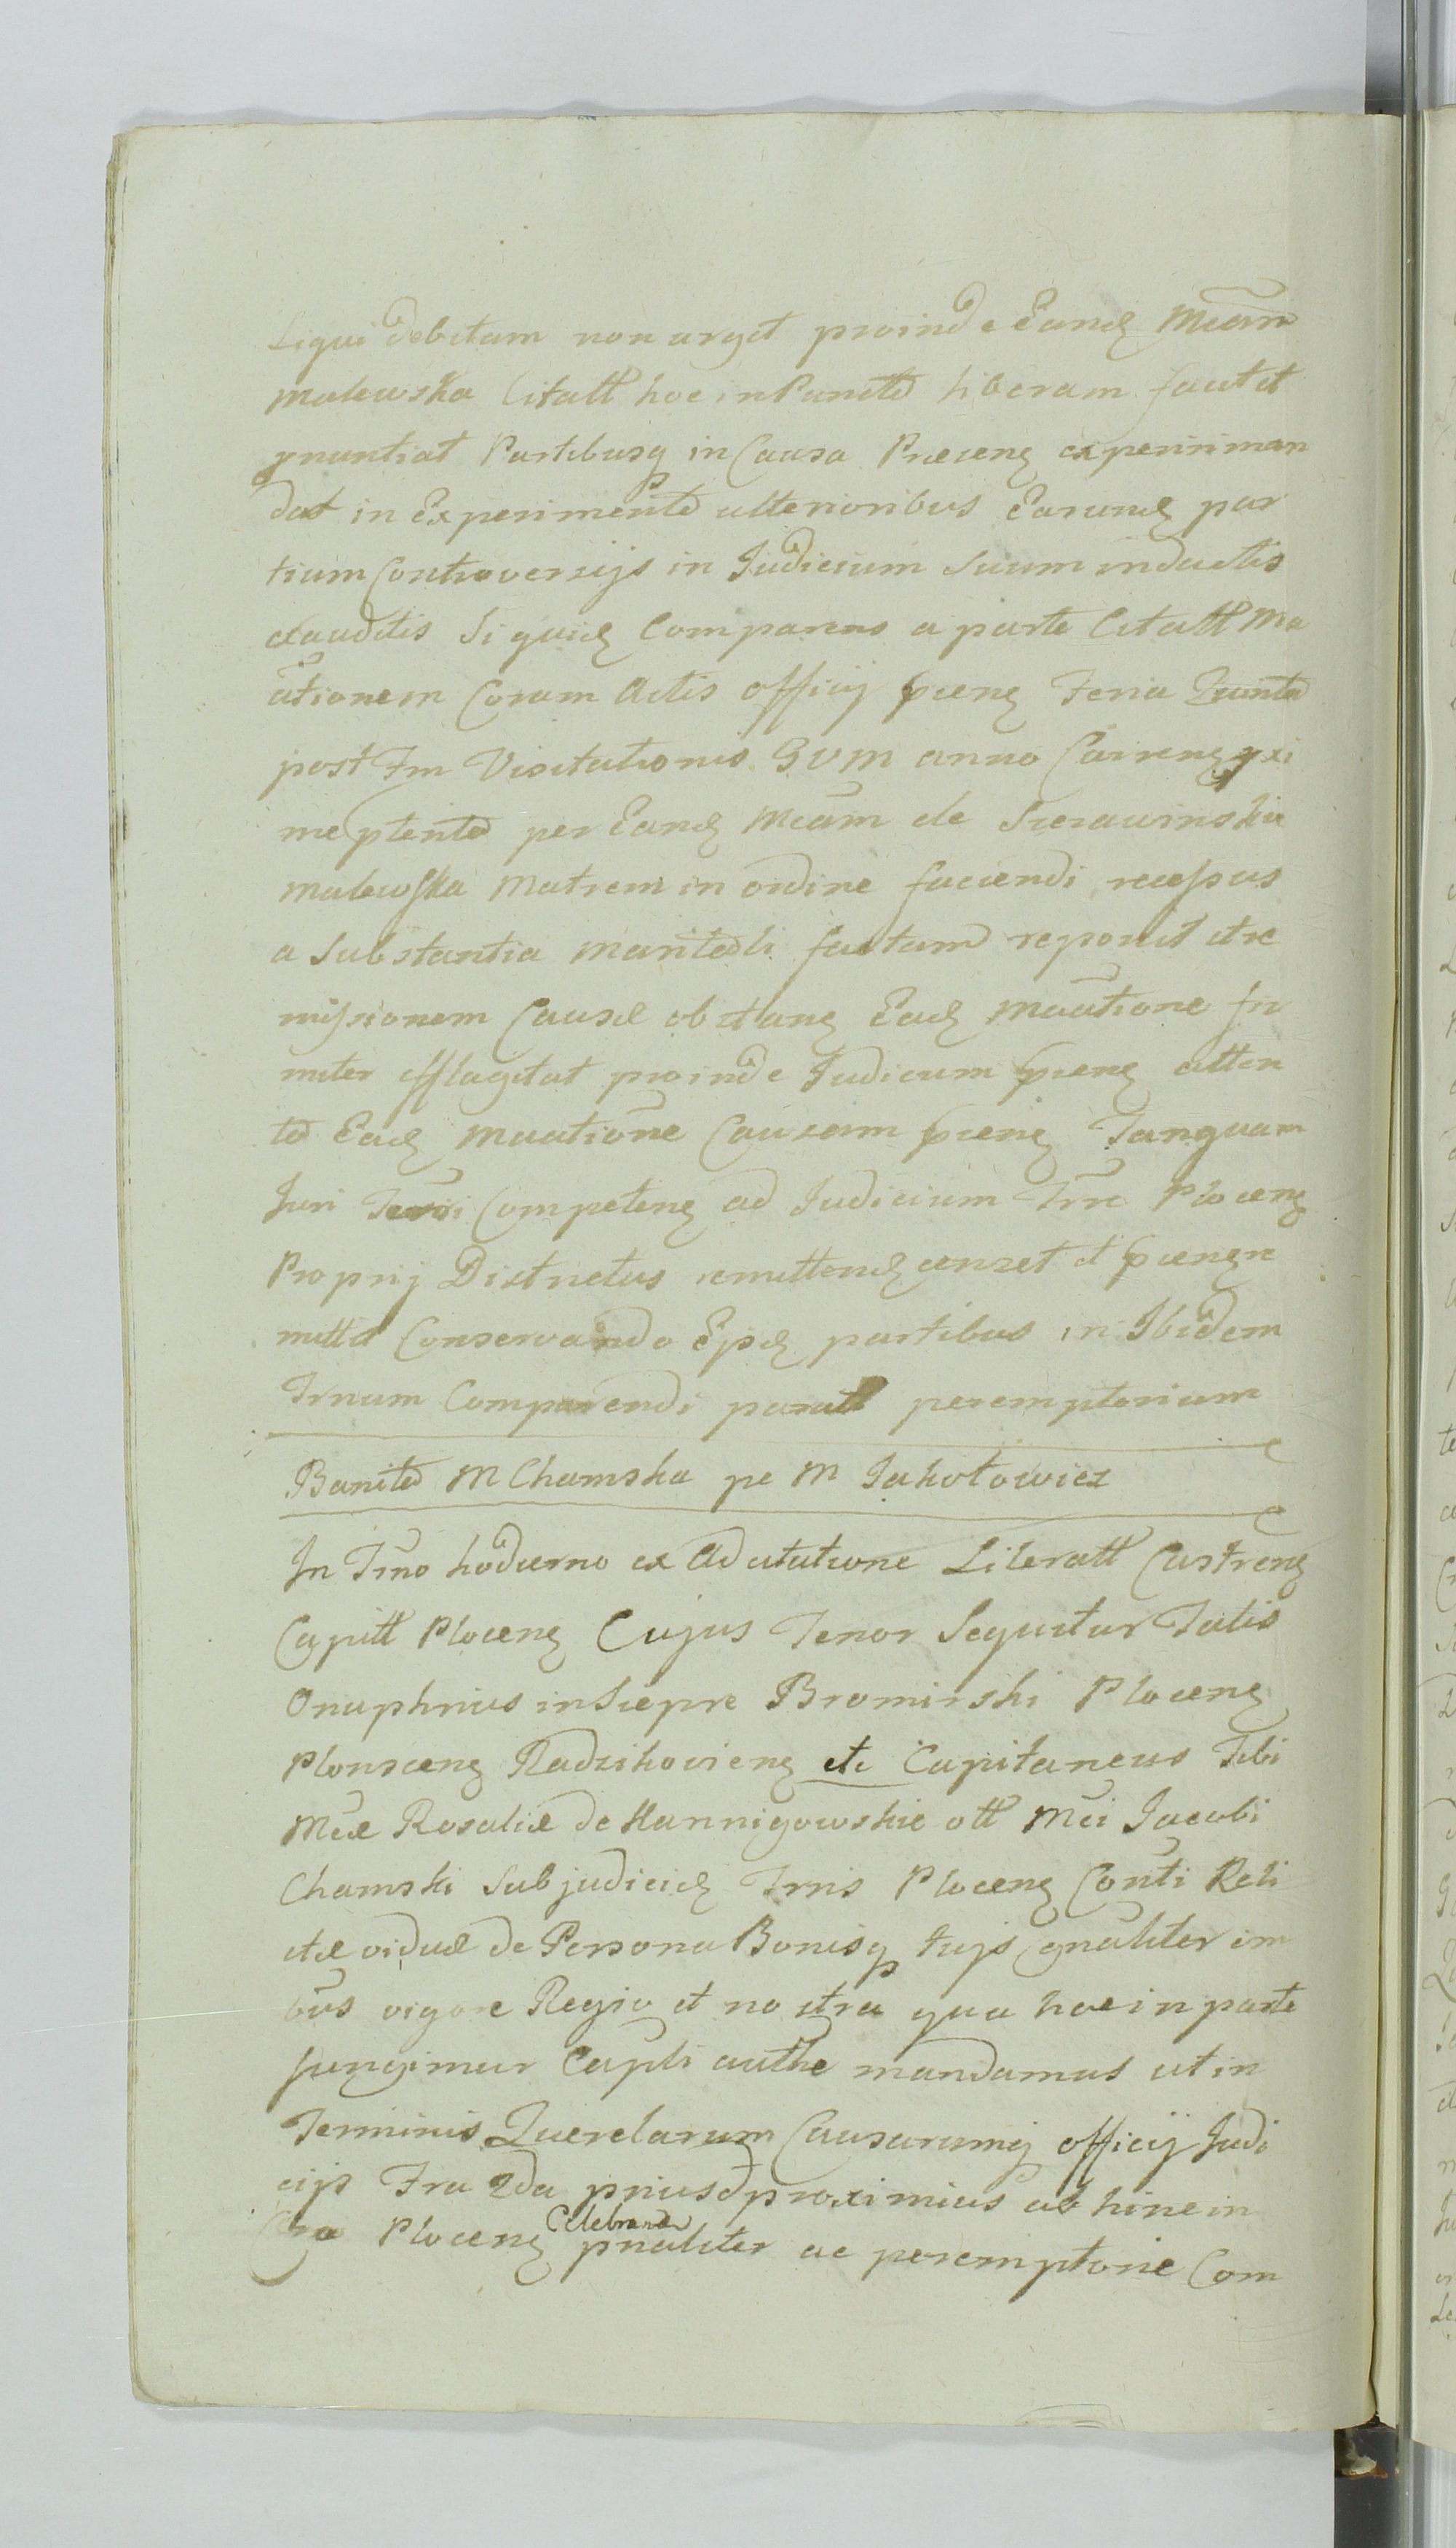 Liqui debitam non urget proinde Eand Mcam
Malewska Citatt hoc in Puncto liberam facit et
pnuntiat Partibusq in Causa Præsenꝫ experiri man
dat in Experimento ulterioribus Earund par
tium Controversijs in Judicium Suum inductis
exauditis Siquid Comparens a parte Citatt Ma
ationem Coram Actis officij præsenꝫ Feria Quinta
post Fm Visitationis BVM anno Cairenꝫ pxi
me ptento per Eand Mcam de Sierawinskie
Malewska Matrem in ordine faciendi recessus
a Substantia Maritali factam reponit et re
missionem Causæ obstanꝫ Ead Maatione fir
miter efflagitat proinde Judicium præsenꝫ atten
to Ead Maatione Causam præsenꝫ Tanquam
Juri Terri Competenꝫ ad Judicium Trre Plocenꝫ
Proprij Districtus remittend censet et præsenꝫ re
mittit Conservando Ejsd partibus in Ibidem
Trnum Comparendi paratt peremptorium
Banito M Chamska pe M Jakołowicz
In Trno hodierno ex Adcitatione Literatt Castrenꝫ
Capitt Plocenꝫ Cujus Tenor Sequitur Talis
Onuphrius in Siepre Bromirski Plocenꝫ
Plonscenꝫ Radzikovienꝫ etc Capitaneus Tibi
Mcæ Rosaliæ de Kannigowskie ott Mci Jacobi
Chamski Subjudicid Trris PlocenꝫConti Reli
ctæ viduæ de Persona Bonisq tuis gnaliter im
bus vigore Regia et nostra qua hac in parte
fungimur Capli authe mandamus ut in
Terminis Querelarum Causarumq officij Judi
cijs Fra 2da priusd proximius ab hinc in
Cro Plocenꝫ Celebrand pnaliter ac peremptorie Com